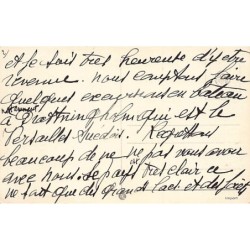 et je suis très heureuse d'y être
revenue. nous comptons faire
quelques excursions en bateau
à Drottningholm qui est le
Versailles Suédois. Regrettons
beaucoup de ne pas vous avoir
avec nous. le pays est clair ce
ne sont que des grands lacs et des forêts